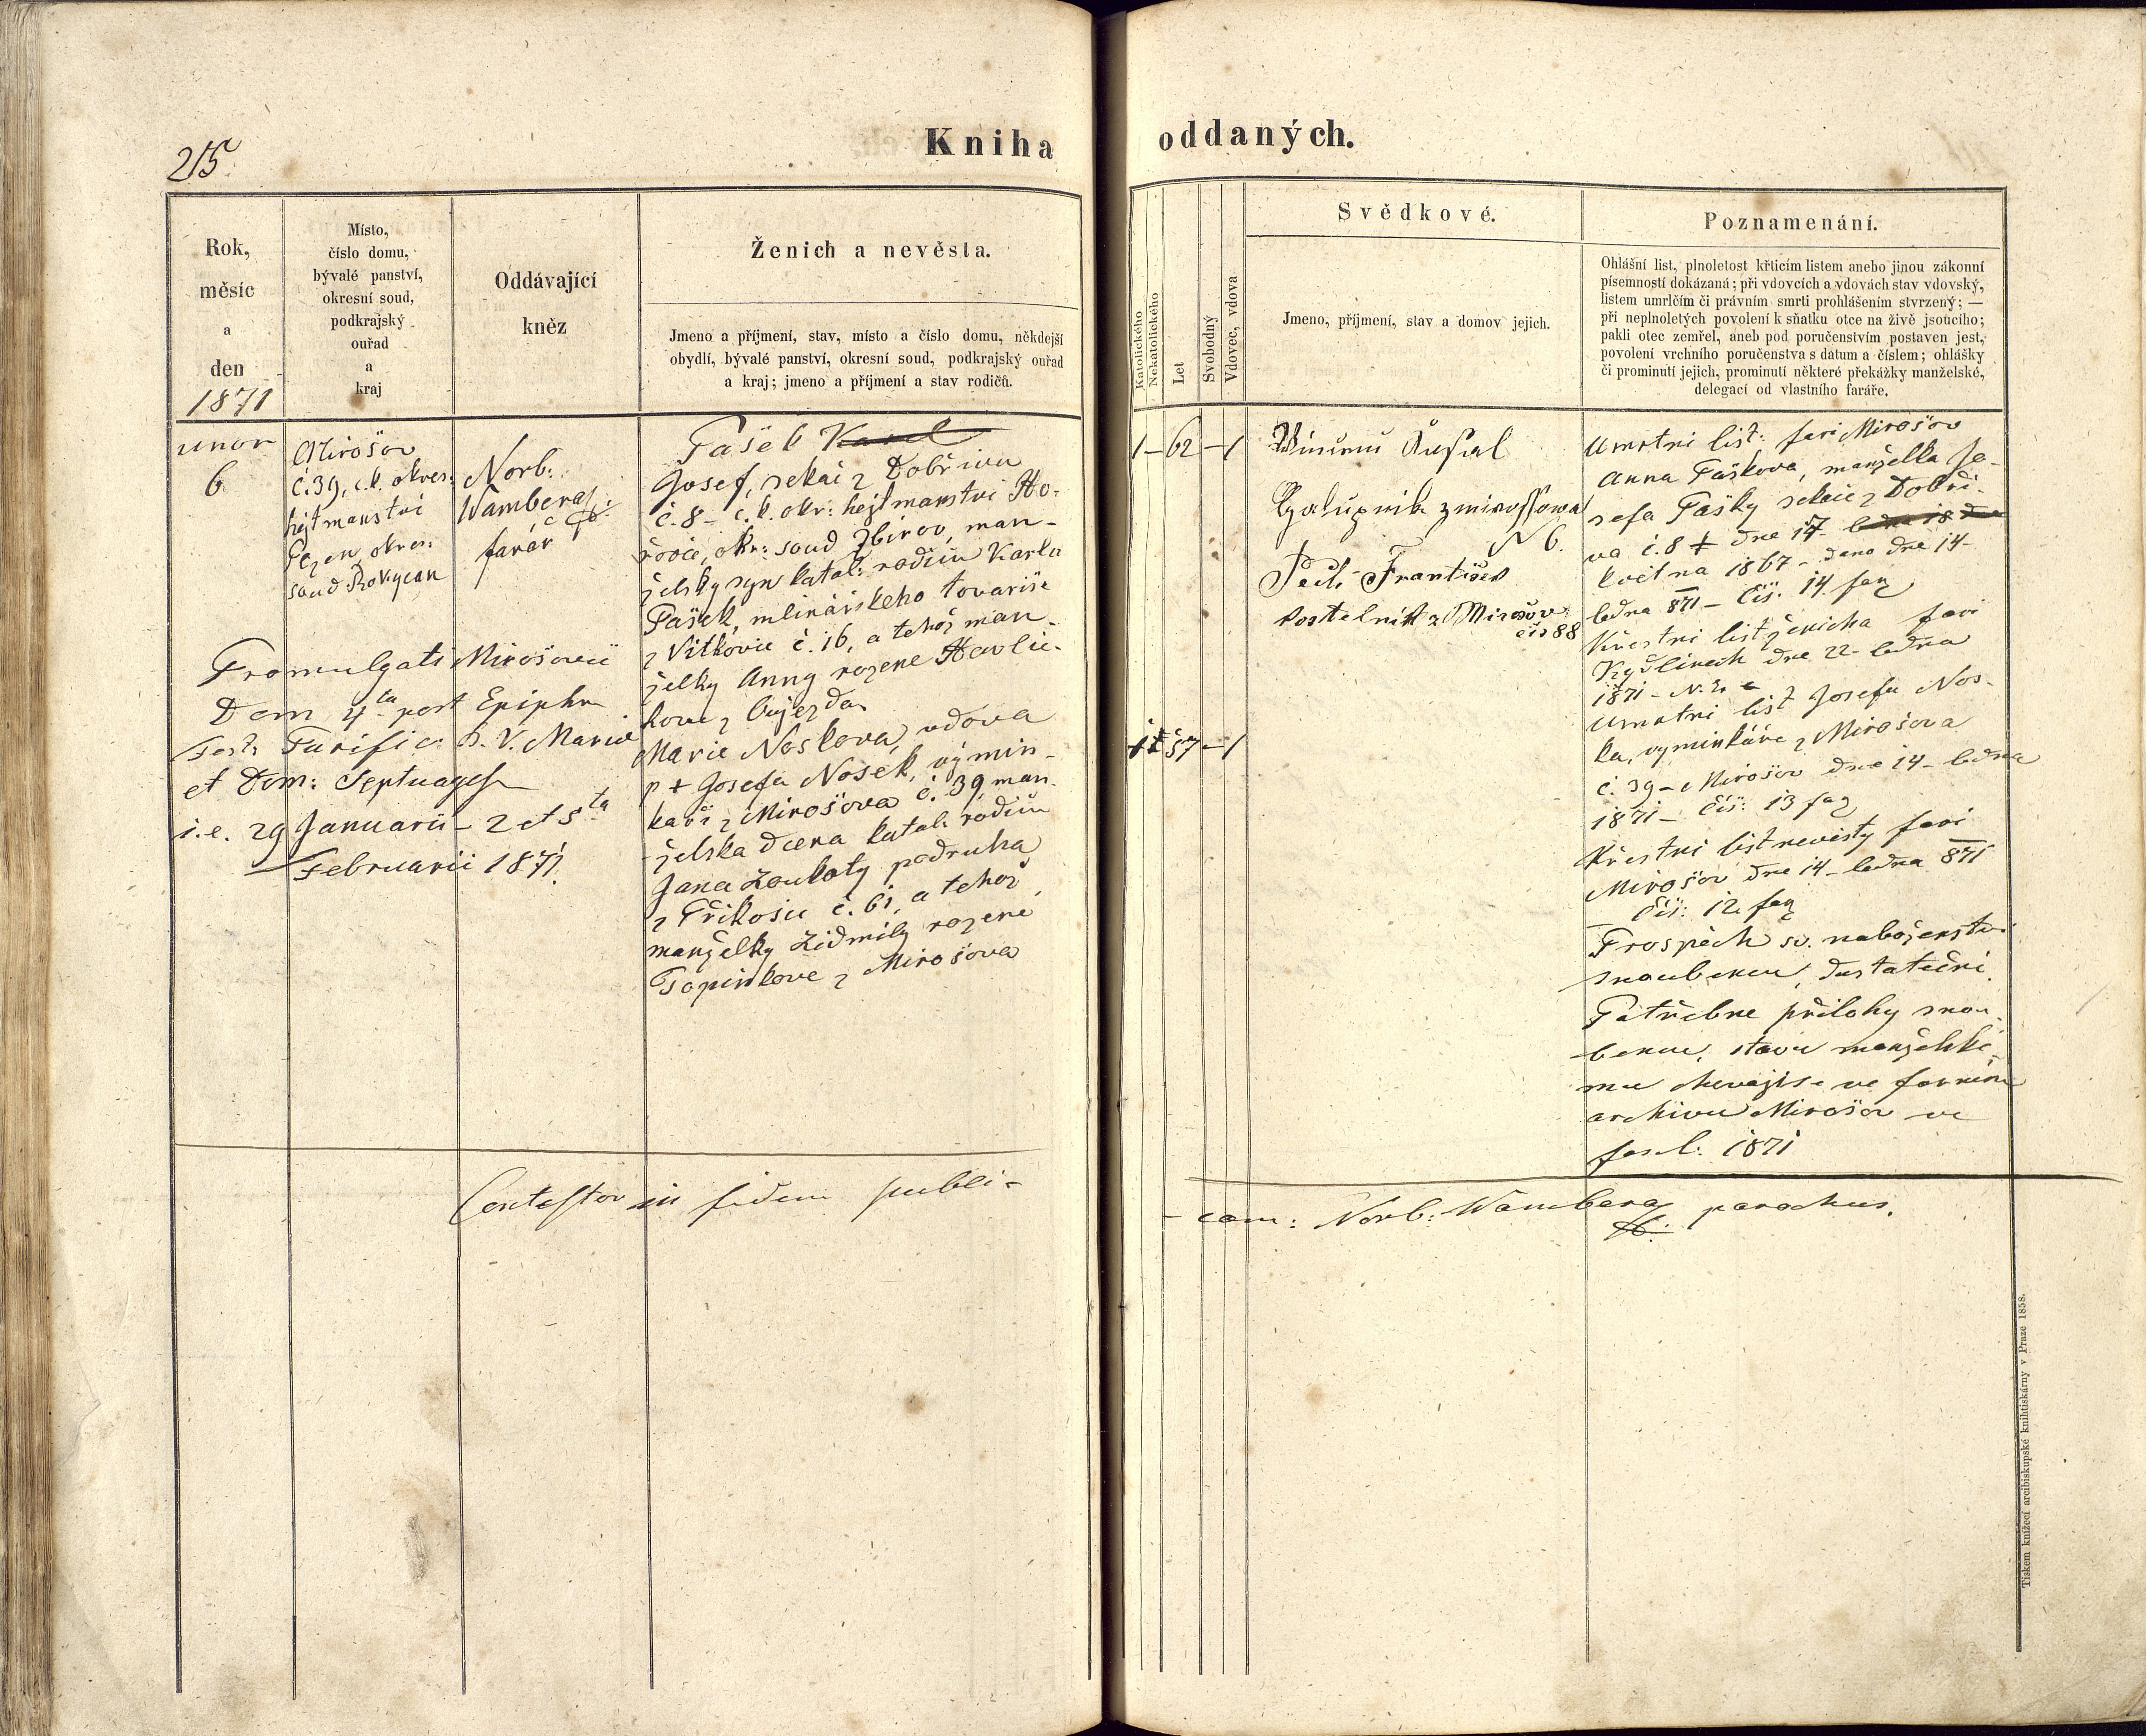 215
Kniha
oddaných.
Rok,
měsíc
a
den
1871
Místo,
číslo domu,
bývalé panství,
okresní soud,
podkrajský
ouřad
a
kraj
Oddávající
kněz
Ženich a nevěsta.
Jmeno a příjmení, stav, místo a číslo domu, někdejší
obydlí, bývalé panství, okresní soud, podkrajský ouřad
a kraj; jmeno a příjmení a stav rodičů.
Katolického
Nekatolického
Let
Svobodný
Vdovec, vdova
Svědkové.
Jmeno, příjmení, stav a domov jejich.
Poznamenání.
Ohlášní list, plnoletost křticím listem anebo jinou zákonní
písemností dokázaná; při vdovcích a vdovách stav vdovský,
listem umrlčím či právním smrti prohlášením stvrzený; —
při neplnoletých povolení k sňatku otce na živě jsoucího;
pakli otec zemřel, aneb pod poručenstvím postaven jest,
povolení vrchního poručenstva s datum a číslem; ohlášky
či prominutí jejich, prominutí některé překážky manželské,
delegací od vlastního faráře.
unor
6
Mirošov
č. 39, c.k. okres:
hejtmanství
okres:
soud Rokycan
Norb:
Wambera
farář
Pašek Karel
Josef, sekáč z Dobřiva
č. 8 – c.k. okr: hejtmanství Ho-
řovic, okr: soud Zbirov, man-
želský syn katol: rodičů Karla
Pašek, mlinářského tovariše
z Vitkovic č. 16, a tehož man-
želky Anny rozene Havlic-
kove z Oujezda
Marie Noskova, vdova
p + Josefa Nosek, výmin-
kaři z Mirošova č. 39, man-
želska dcera katol: rodičů
Jana Loukoty podruha
z Přikosic č. 61, a tehož
manželky Lidmily rozené
Topinkove z Mirošova
Promulgati Mirošovii
Dom 4ta post Epiph
Fest: Purific: B. V. Mariae
et Dom: Septuages
i.e. 29 Januarii – 2 et 5ta
Februarii 1871.
1 – 62 – 1
1 57 – 1
N 6.
František
kostelník z Mirošova
čís 88
Umrtni list: fari Mirošov
Anna Paškova, manželka Jo-
sefa Pašky sekáče z Dobři-
va č. 8 + dne 17.
května 1867 – dano dne 14.
ledna 871 – čis: 14 fag
Křestni list ženicha fari
dne 22. ledna
1871 –
Umrtni list Josefa Nos-
ka, vyminkáře z Mirošova
č. 39 – Mirošov dne 14 – ledna
1871 – čis: 13 fag
Křestni list nevěsty fari
Mirošov dne 14 – ledna 871
čis: 12 fag
Prospěch sv. naboženstvi
snoubencu, dostatečni.
Potřebne přilohy snou-
bencu, stavu manželské-
mu chovaji se ve farnim
archivu Mirošov ve
fascl: 1871
Contestor in fidem publi-
cam: Norb: Wambera parochus.
Tiskem knížecí arcibiskupské knihtiskárny v Praze 1858.